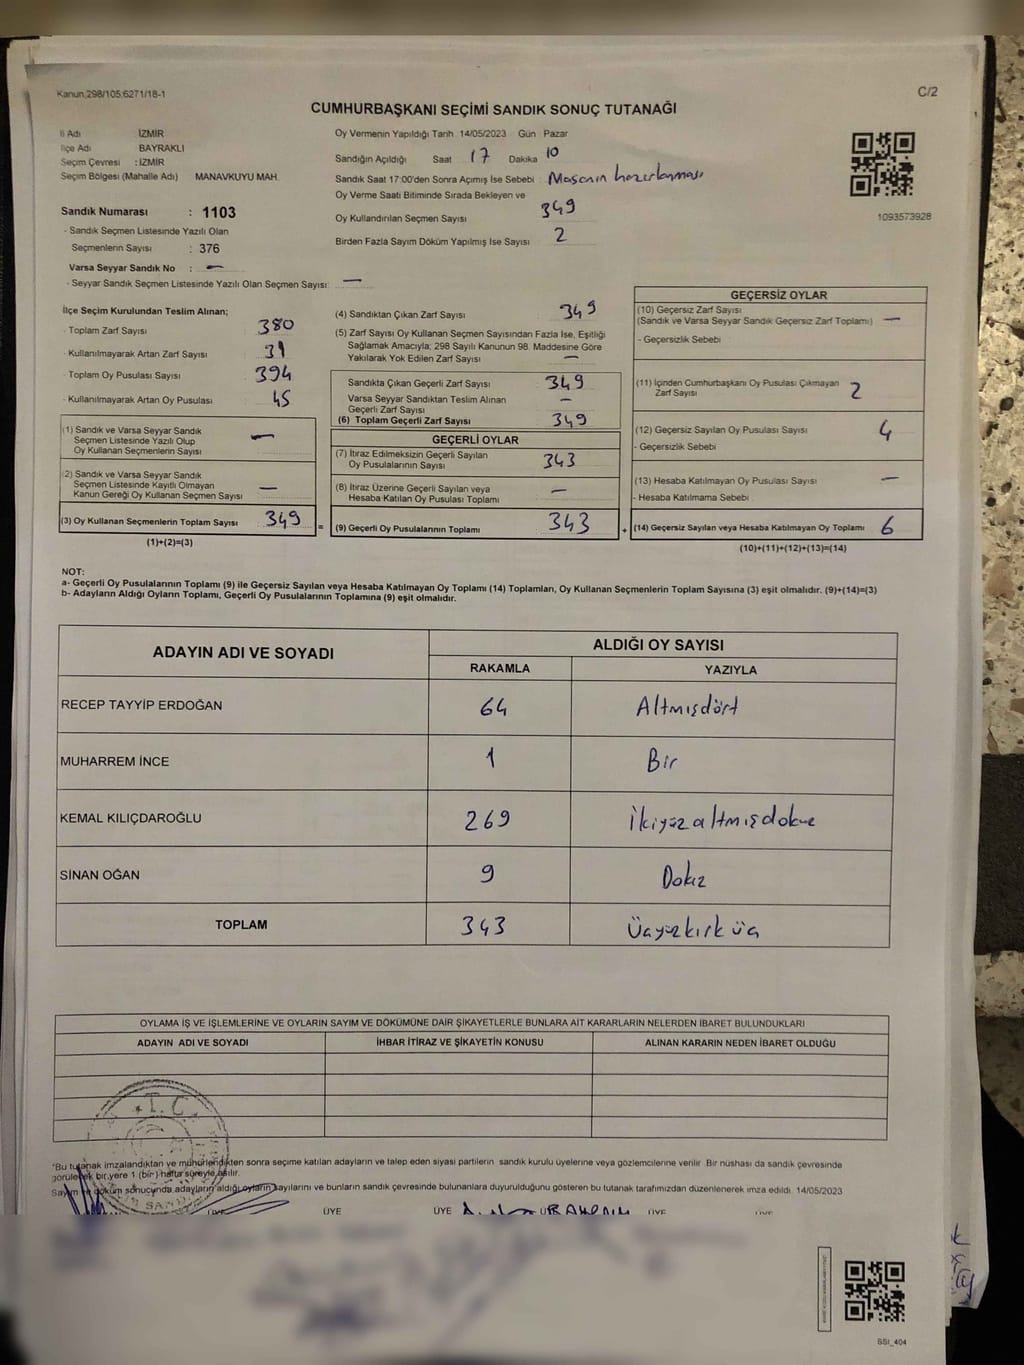 Kanun 298/105;6271/18-1
C/2
CUMHURBAŞKANI SEÇİMİ SANDIK SONUÇ TUTANAĞI
İl Adı İZMİR
İlçe Adı BAYRAKLI
Seçim Çevresi : İZMİR
Seçim Bölgesi (Mahalle Adı) MANAVKUYU MAH.
Sandık Numarası : 1103
- Sandık Seçmen Listesinde Yazılı Olan
Seçmenlerin Sayısı : 376
Varsa Seyyar Sandık No : —
- Seyyar Sandık Seçmen Listesinde Yazılı Olan Seçmen Sayısı: —
Oy Vermenin Yapıldığı Tarih 14/05/2023 Gün Pazar
Sandığın Açıldığı Saat 17 Dakika 10
Sandık Saat 17:00'den Sonra Açımış İse Sebebi : Masanın hazırlanması
Oy Verme Saati Bitiminde Sırada Bekleyen ve
Oy Kullandırılan Seçmen Sayısı 349
Birden Fazla Sayım Döküm Yapılmış İse Sayısı 2
1093573928
İlçe Seçim Kurulundan Teslim Alınan;
- Toplam Zarf Sayısı 380
- Kullanılmayarak Artan Zarf Sayısı 31
- Toplam Oy Pusulası Sayısı 394
- Kullanılmayarak Artan Oy Pusulası 45
(1) Sandık ve Varsa Seyyar Sandık
Seçmen Listesinde Yazılı Olup
Oy Kullanan Seçmenlerin Sayısı —
(2) Sandık ve Varsa Seyyar Sandık
Seçmen Listesinde Kayıtlı Olmayan
Kanun Gereği Oy Kullanan Seçmen Sayısı —
(3) Oy Kullanan Seçmenlerin Toplam Sayısı 349 =
(1)+(2)=(3)
(4) Sandıktan Çıkan Zarf Sayısı 349
(5) Zarf Sayısı Oy Kullanan Seçmen Sayısından Fazla İse, Eşitliği
Sağlamak Amacıyla; 298 Sayılı Kanunun 98. Maddesine Göre
Yakılarak Yok Edilen Zarf Sayısı —
Sandıkta Çıkan Geçerli Zarf Sayısı 349
Varsa Seyyar Sandıktan Teslim Alınan
Geçerli Zarf Sayısı —
(6) Toplam Geçerli Zarf Sayısı 349
GEÇERLİ OYLAR
(7) İtiraz Edilmeksizin Geçerli Sayılan
Oy Pusulalarının Sayısı 343
(8) İtiraz Üzerine Geçerli Sayılan veya
Hesaba Katılan Oy Pusulası Toplamı —
(9) Geçerli Oy Pusulalarının Toplamı 343 +
GEÇERSİZ OYLAR
(10) Geçersiz Zarf Sayısı
(Sandık ve Varsa Seyyar Sandık Geçersiz Zarf Toplamı) —
- Geçersizlik Sebebi
(11) İçinden Cumhurbaşkanı Oy Pusulası Çıkmayan
Zarf Sayısı 2
(12) Geçersiz Sayılan Oy Pusulası Sayısı 4
- Geçersizlik Sebebi
(13) Hesaba Katılmayan Oy Pusulası Sayısı —
- Hesaba Katılmama Sebebi
(14) Geçersiz Sayılan veya Hesaba Katılmayan Oy Toplamı 6
(10)+(11)+(12)+(13)=(14)
NOT:
a- Geçerli Oy Pusulalarının Toplamı (9) ile Geçersiz Sayılan veya Hesaba Katılmayan Oy Toplamı (14) Toplamları, Oy Kullanan Seçmenlerin Toplam Sayısına (3) eşit olmalıdır. (9)+(14)=(3)
b- Adayların Aldığı Oyların Toplamı, Geçerli Oy Pusulalarının Toplamına (9) eşit olmalıdır.
ADAYIN ADI VE SOYADI ALDIĞI OY SAYISI
RAKAMLA YAZIYLA
RECEP TAYYİP ERDOĞAN 64 Altmışdört
MUHARREM İNCE 1 Bir
KEMAL KILIÇDAROĞLU 269 İkiyüzaltmışdokuz
SİNAN OĞAN 9 Dokuz
TOPLAM 343 Üçyüzkırküç
OYLAMA İŞ VE İŞLEMLERİNE VE OYLARIN SAYIM VE DÖKÜMÜNE DAİR ŞİKAYETLERLE BUNLARA AİT KARARLARIN NELERDEN İBARET BULUNDUKLARI
ADAYIN ADI VE SOYADI İHBAR İTİRAZ VE ŞİKAYETİN KONUSU ALINAN KARARIN NEDEN İBARET OLDUĞU
T.C.
*Bu tutanak imzalandıktan ve mühürlendikten sonra seçime katılan adayların ve talep eden siyasi partilerin sandık kurulu üyelerine veya gözlemcilerine verilir. Bir nüshası da sandık çevresinde
görülecek bir yere 1 (bir) hafta süreyle asılır.
Sayım ve döküm sonucunda adayların aldığı oyların sayılarını ve bunların sandık çevresinde bulunanlara duyurulduğunu gösteren bu tutanak tarafımızdan düzenlenerek imza edildi. 14/05/2023
ÜYE ÜYE ÜYE ÜYE
SSI_404